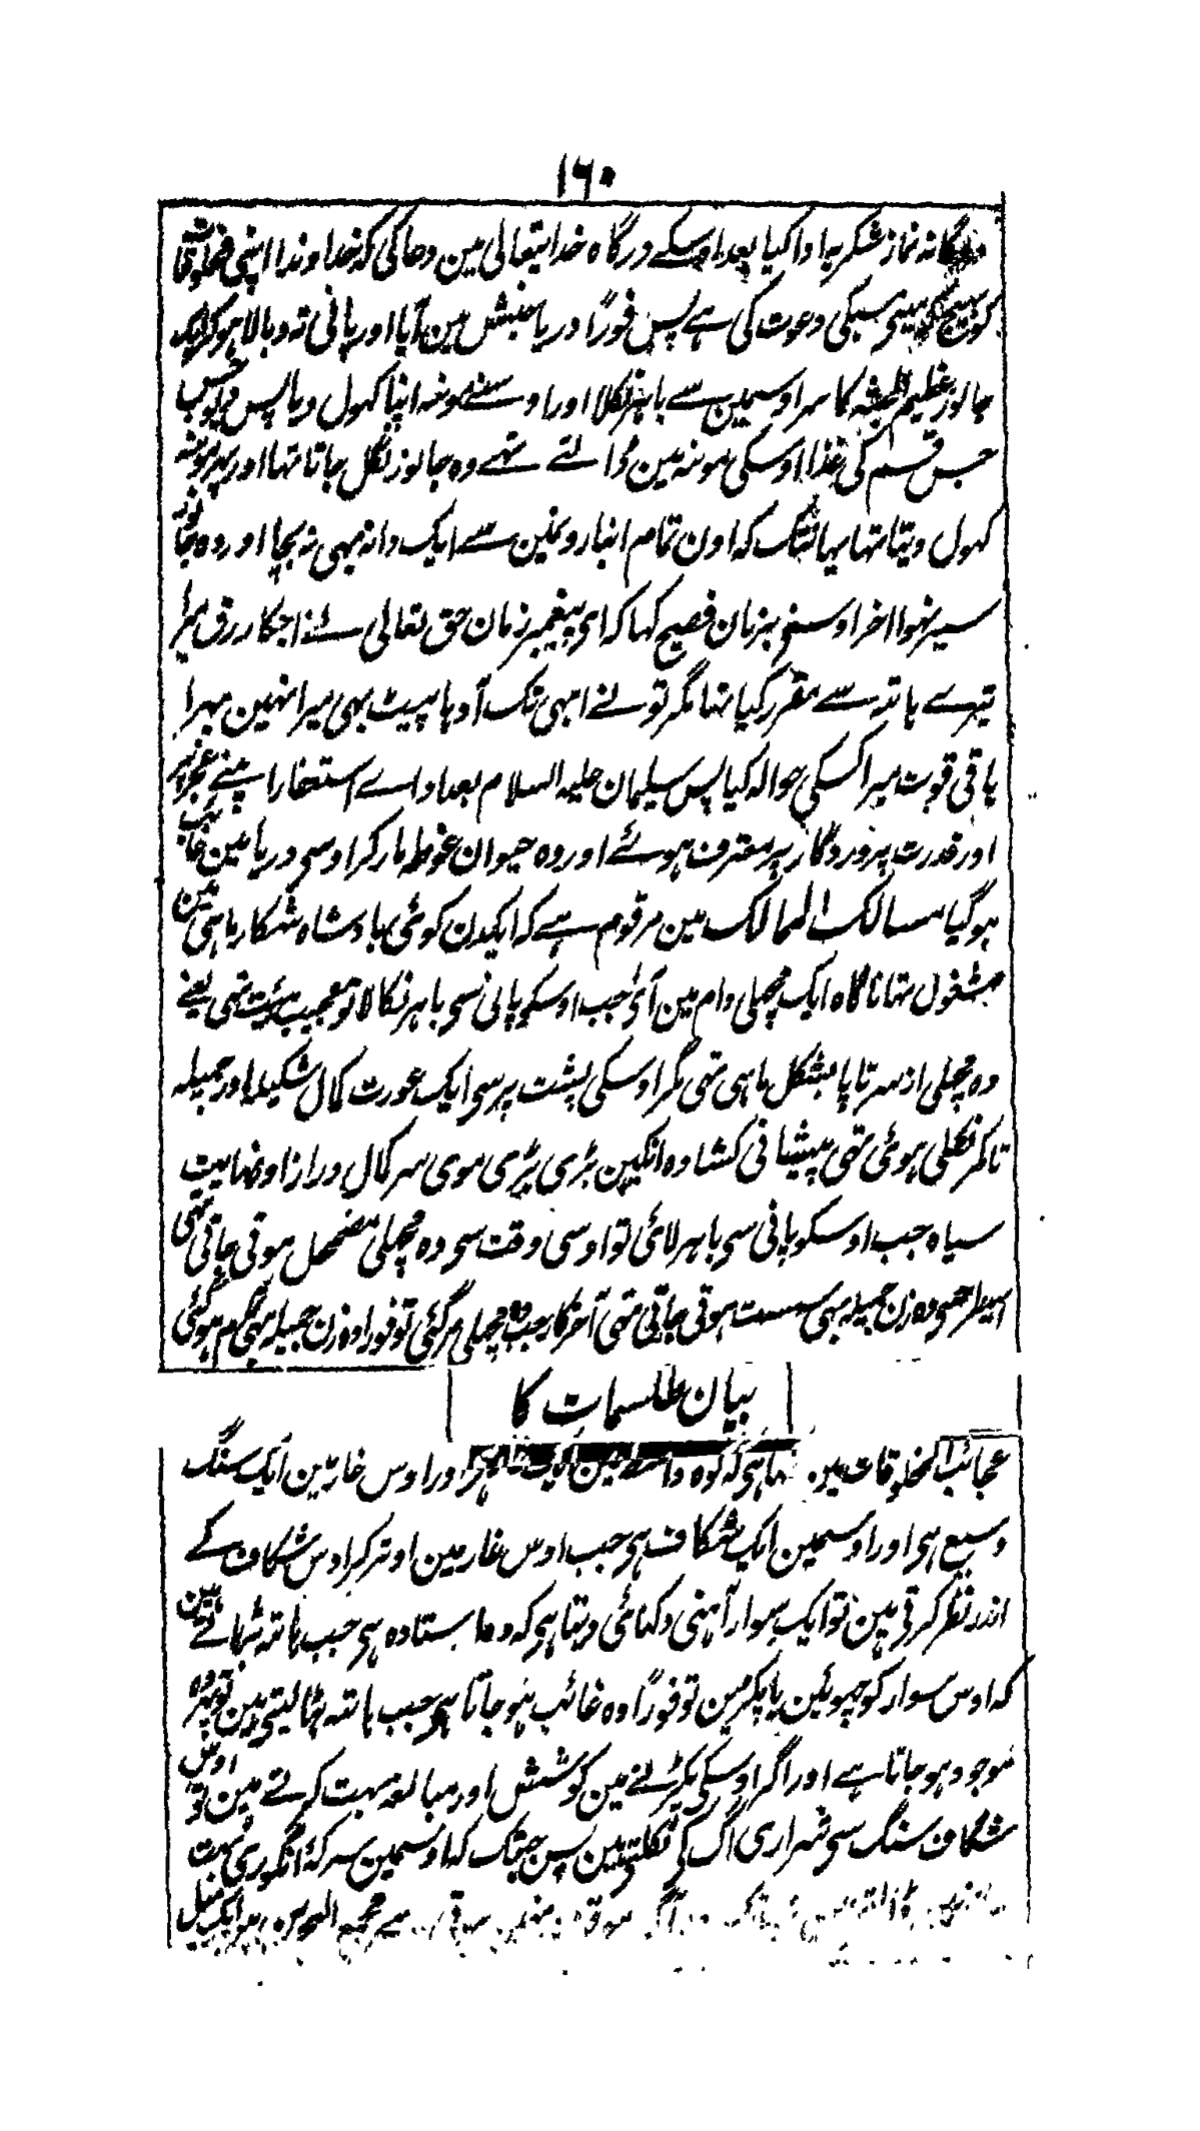 ۱۶۰
دوگانہ نماز شکریہ ادا کیا بعد اوسکے درگاہ خدایتعالی مین دعا کی کہ خداوندا اپنی مخلوقات
کو بہیج کہ مینی سبکی دعوت کی ہے پس فوراً دریا جنبش مین آیا اور پانی تہ و بالا ہوکر ایک
جانور عظیم الجثہ کا سر اوسمین سے باہر نکلا اور اوسنے مونہ اپنا کہول دیا پس دیو سب
جس قسم کی غذا اوسکی مونہ مین ڈالتے تہے وہ جانور نگل جاتا تہا اور پہر مونہ
کہول دیتا تہا یہانتک کہ اون تمام انبارون مین سے ایک دانہ بہی نہ بچا اور وہ جانور
سیر نہوا اخر اوسنی بزبان فصیح کہا کہ ای پیغمبر زمان حق تعالی نے آجکا رزق میرا
تیرے ہاتہ سے مقرر کیا تہا مگر تو نے ابہی تک آدہا پیٹ بہی میرا نہین بہرا
باقی قوت میرا کسکی حوالہ کیا پس سلیمان علیہ السلام بعد ادا استغفار اپنے عجز پر
اور قدرت پروردگار پر معترف ہوئے اور وہ حیوان غوطہ مار کر اوسی دریا مین غائب
ہوگیا مسالک الممالک مین مرقوم ہے کہ ایکدن کوئی بادشاہ شکار ماہی مین
مشغول تہا ناگاہ ایک مچہلی دام مین آئی جب اوسکو پانی سی باہر نکالا تو عجیب ہیئت تہی یعنے
وہ مچہلی از سر تا پا بشکل ماہی تہی مگر اوسکی پشت پر سی ایک عورت کمال شکیلہ اور جمیلہ
تا کمر نکلی ہوئی تہی پیشانی کشادہ انکہین بڑی بڑی موی سر کمال دراز اور نہایت
سیاہ جب اوسکو پانی سی باہر لائی تو اوسی وقت سی وہ مچہلی مضمحل ہوتی جاتی تہی
اسیطرحسی وہ زن جمیلہ بہی سست ہوتی جاتی تہی آخر کار جب وہ مچہلی مر گئی تو فوراً وہ زن جمیلہ بہی گم ہوگئی
بیان طلسمات کا
عجائب المخلوقات مین ہی کہ کوہ مین ایک اور اوس غار مین ایک سنگ
وسیع ہی اور اوسمین ایک شگاف ہی جب اوس غار مین اوتر کر اوس شگاف کے
اندر نظر کرتی ہین تو ایک سوار آہنی دکہائی دیتا ہی کہ وہ استادہ ہی جب ہاتہ بڑہاتے ہین
کہ اوس سوار کو چہوئین یا پکڑین تو فوراً وہ غائب ہو جاتا ہی جب ہاتہ ہٹا لیتی ہین تو پہر وہ
موجود ہو جاتا ہے اور اگر اوسکی پکڑنے مین کوشش اور مبالغہ بہت کرتے ہین تو اوس
شگاف سنگ سی شراری آگ کی نکلتی ہین پس جبتک کہ اوسمین سرکہ انگوری بہت